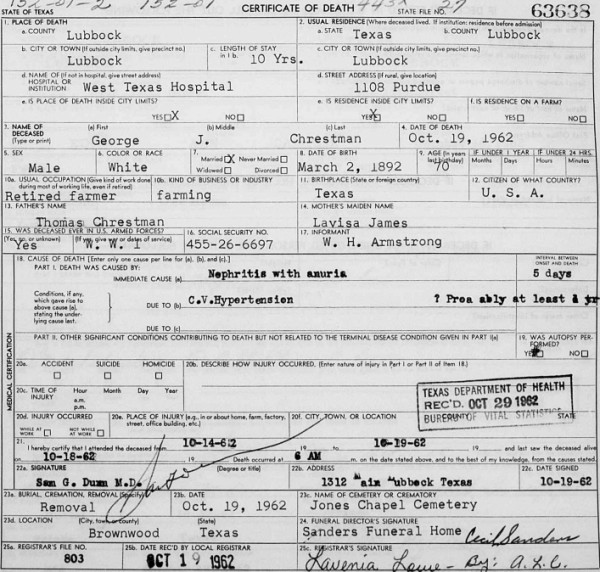 STATE OF TEXAS CERTIFICATE OF DEATH STATE FILE NO. 27 63638
1. PLACE OF DEATH 2. USUAL RESIDENCE (Where deceased lived. If institution: residence before admission)
a. COUNTY Lubbock a. STATE Texas b. COUNTY Lubbock
b. CITY OR TOWN (If outside city limits, give precinct no.) c. LENGTH OF STAY in 1 b. c. CITY OR TOWN (If outside city limits, give precinct no.)
Lubbock 10 Yrs. Lubbock
d. NAME OF (If not in hospital, give street address) HOSPITAL OR INSTITUTION West Texas Hospital d. STREET ADDRESS (If rural, give location) 1108 Purdue
e. IS PLACE OF DEATH INSIDE CITY LIMITS? e. IS RESIDENCE INSIDE CITY LIMITS? f. IS RESIDENCE ON A FARM?
YES X NO YES X NO YES NO
3. NAME OF DECEASED (Type or print) (a) First (b) Middle (c) Last 4. DATE OF DEATH
George J. Chrestman Oct. 19, 1962
5. SEX 6. COLOR OR RACE 7. Married X Never Married Widowed Divorced 8. DATE OF BIRTH 9. AGE (In years last birthday) IF UNDER 1 YEAR Months Days IF UNDER 24 HRS. Hours Minutes
Male White March 2, 1892 70
10a. USUAL OCCUPATION (Give kind of work done during most of working life, even if retired) 10b. KIND OF BUSINESS OR INDUSTRY 11. BIRTHPLACE (State or foreign country) 12. CITIZEN OF WHAT COUNTRY?
Retired farmer farming Texas U. S. A.
13. FATHER'S NAME 14. MOTHER'S MAIDEN NAME
Thomas Chrestman Lavisa James
15. WAS DECEASED EVER IN U.S. ARMED FORCES? 16. SOCIAL SECURITY NO. 17. INFORMANT
(Yes, no, or unknown) (If yes, give war or dates of service)
Yes W. W. I 455-26-6697 W. H. Armstrong
MEDICAL CERTIFICATION
18. CAUSE OF DEATH [Enter only one cause per line for (a), (b), and (c).] INTERVAL BETWEEN ONSET AND DEATH
PART I. DEATH WAS CAUSED BY: IMMEDIATE CAUSE (a) Nephritis with anuria 5 days
Conditions, if any, which gave rise to above cause (a), stating the underlying cause last. DUE TO (b) C.V.Hypertension ? Proa ably at least
DUE TO (c)
PART II. OTHER SIGNIFICANT CONDITIONS CONTRIBUTING TO DEATH BUT NOT RELATED TO THE TERMINAL DISEASE CONDITION GIVEN IN PART I(a) 19. WAS AUTOPSY PERFORMED? YES NO
20a. ACCIDENT SUICIDE HOMICIDE 20b. DESCRIBE HOW INJURY OCCURRED. (Enter nature of injury in Part I or Part II of item 18.)
20c. TIME OF INJURY Hour a.m. p.m. Month Day Year
TEXAS DEPARTMENT OF HEALTH
REC'D. OCT 29 1962
BUREAU OF VITAL STATISTICS
20d. INJURY OCCURRED WHILE AT WORK NOT WHILE AT WORK 20e. PLACE OF INJURY (e.g., in or about home, farm, factory, street, office building, etc.) 20f. CITY, TOWN, OR LOCATION COUNTY STATE
21. I hereby certify that I attended the deceased from 10-14-62 19 to 10-19-62 19 and last saw the deceased alive
on 10-18-62 19 Death occurred at 6 AM m. on the date stated above, and to the best of my knowledge, from the causes stated.
22a. SIGNATURE (Degree or title) 22b. ADDRESS 22c. DATE SIGNED
Sam G. Dunn M.D. 1312 Main Lubbock Texas 10-19-62
23a. BURIAL, CREMATION, REMOVAL (Specify) 23b. DATE 23c. NAME OF CEMETERY OR CREMATORY
Removal Oct. 19, 1962 Jones Chapel Cemetery
23d. LOCATION (City, town, or county) (State) 24. FUNERAL DIRECTOR'S SIGNATURE
Brownwood Texas Sanders Funeral Home Cecil Sanders
25a. REGISTRAR'S FILE NO. 25b. DATE REC'D BY LOCAL REGISTRAR 25c. REGISTRAR'S SIGNATURE
803 OCT 19 1962 Lavenia Lowe - By: A. L. C.